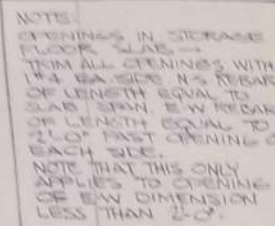 NOTE:
OPENINGS IN STORAGE
FLOOR SLAB —
TRIM ALL OPENINGS WITH
1 #4 EA. SIDE. N-S REBAR
OF LENGTH EQUAL TO
SLAB SPAN. E W REBAR
OF LENGTH EQUAL TO
2'-0" PAST OPENING
EACH SIDE.
NOTE THAT THIS ONLY
APPLIES TO OPENING
OF E-W DIMENSION
LESS THAN 2'-0".